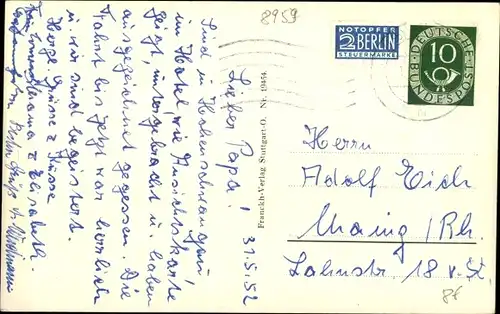 8959
NOTOPFER
2 BERLIN
STEUERMARKE
DEUTSCHE
BUNDESPOST
10
31.5.52
Lieber Papa!
Sind in Hohenschwangau
im Hotel wie Ansichtskarte
zeigt, untergebracht u. haben
ausgezeichnet gegessen. Die
Fahrt bis jetzt war herrlich
u. wir sind begeistert.
Herzl. Grüsse u. Küsse
Mama u. Elisabeth.
Franckh-Verlag Stuttgart-O. Nr. 19454
Herrn
Adolf Eich
Mainz/Rh.
Lahnstr. 18
8€